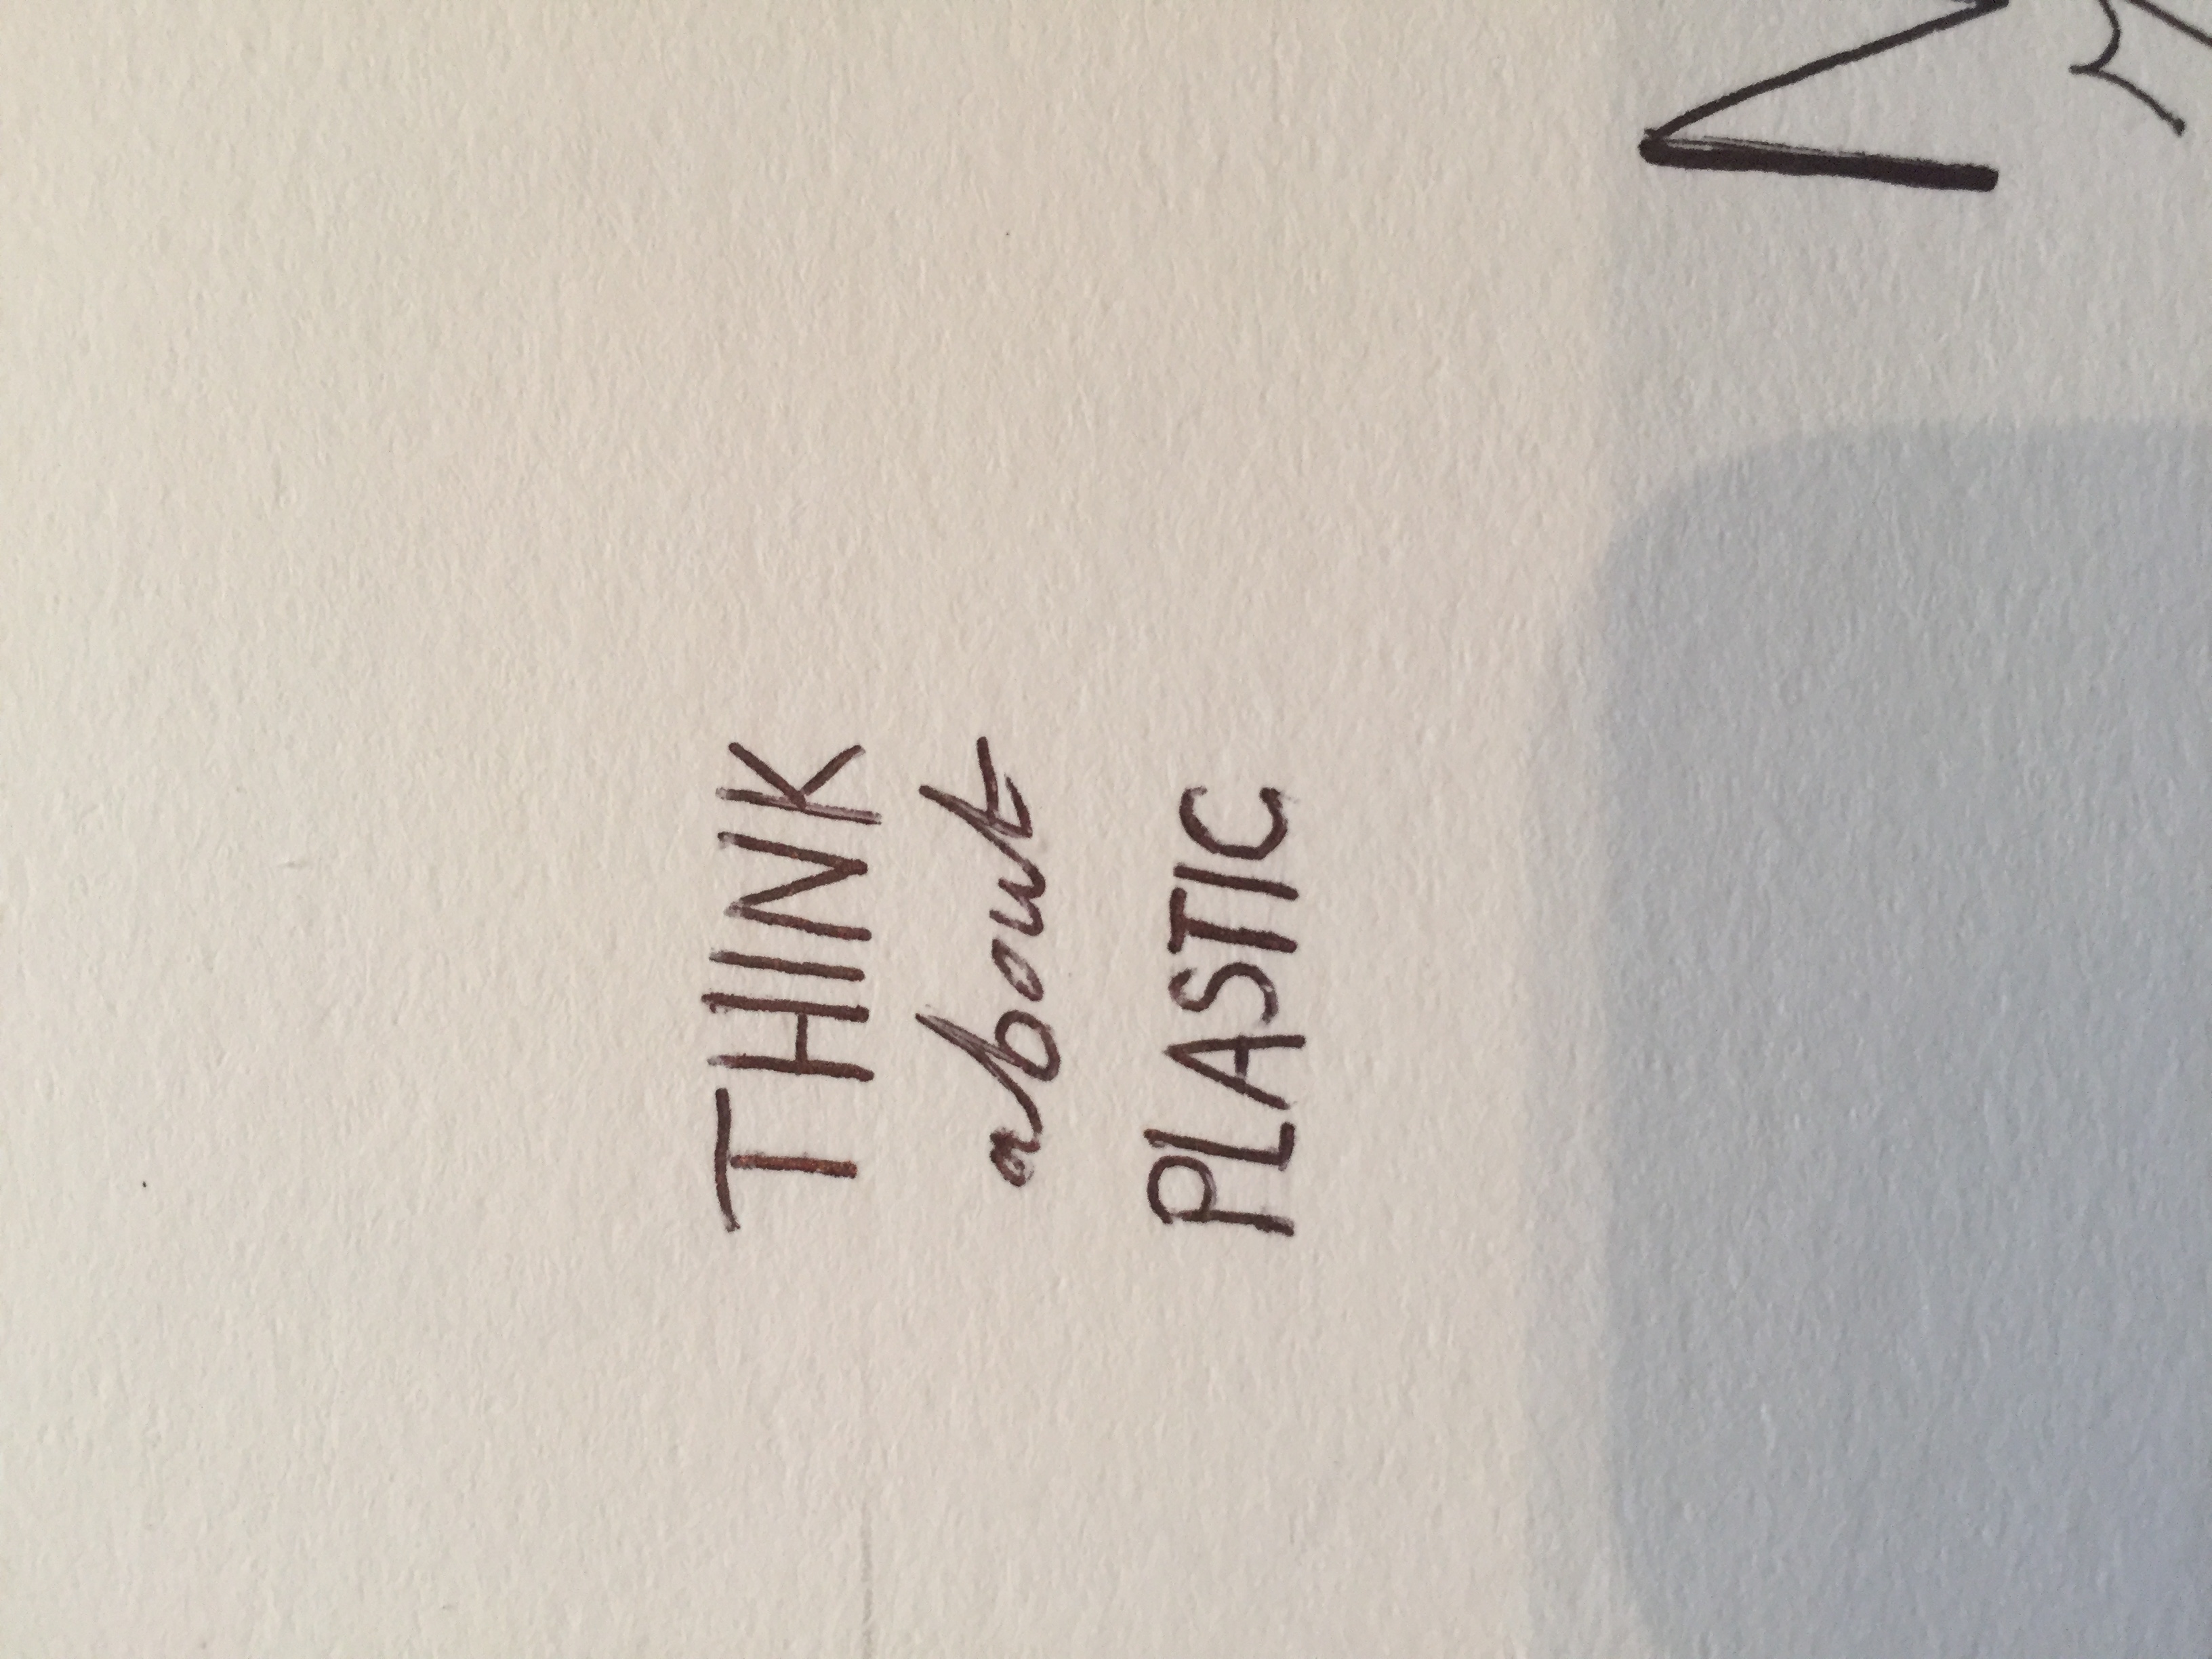 THINK
about
PLASTIC